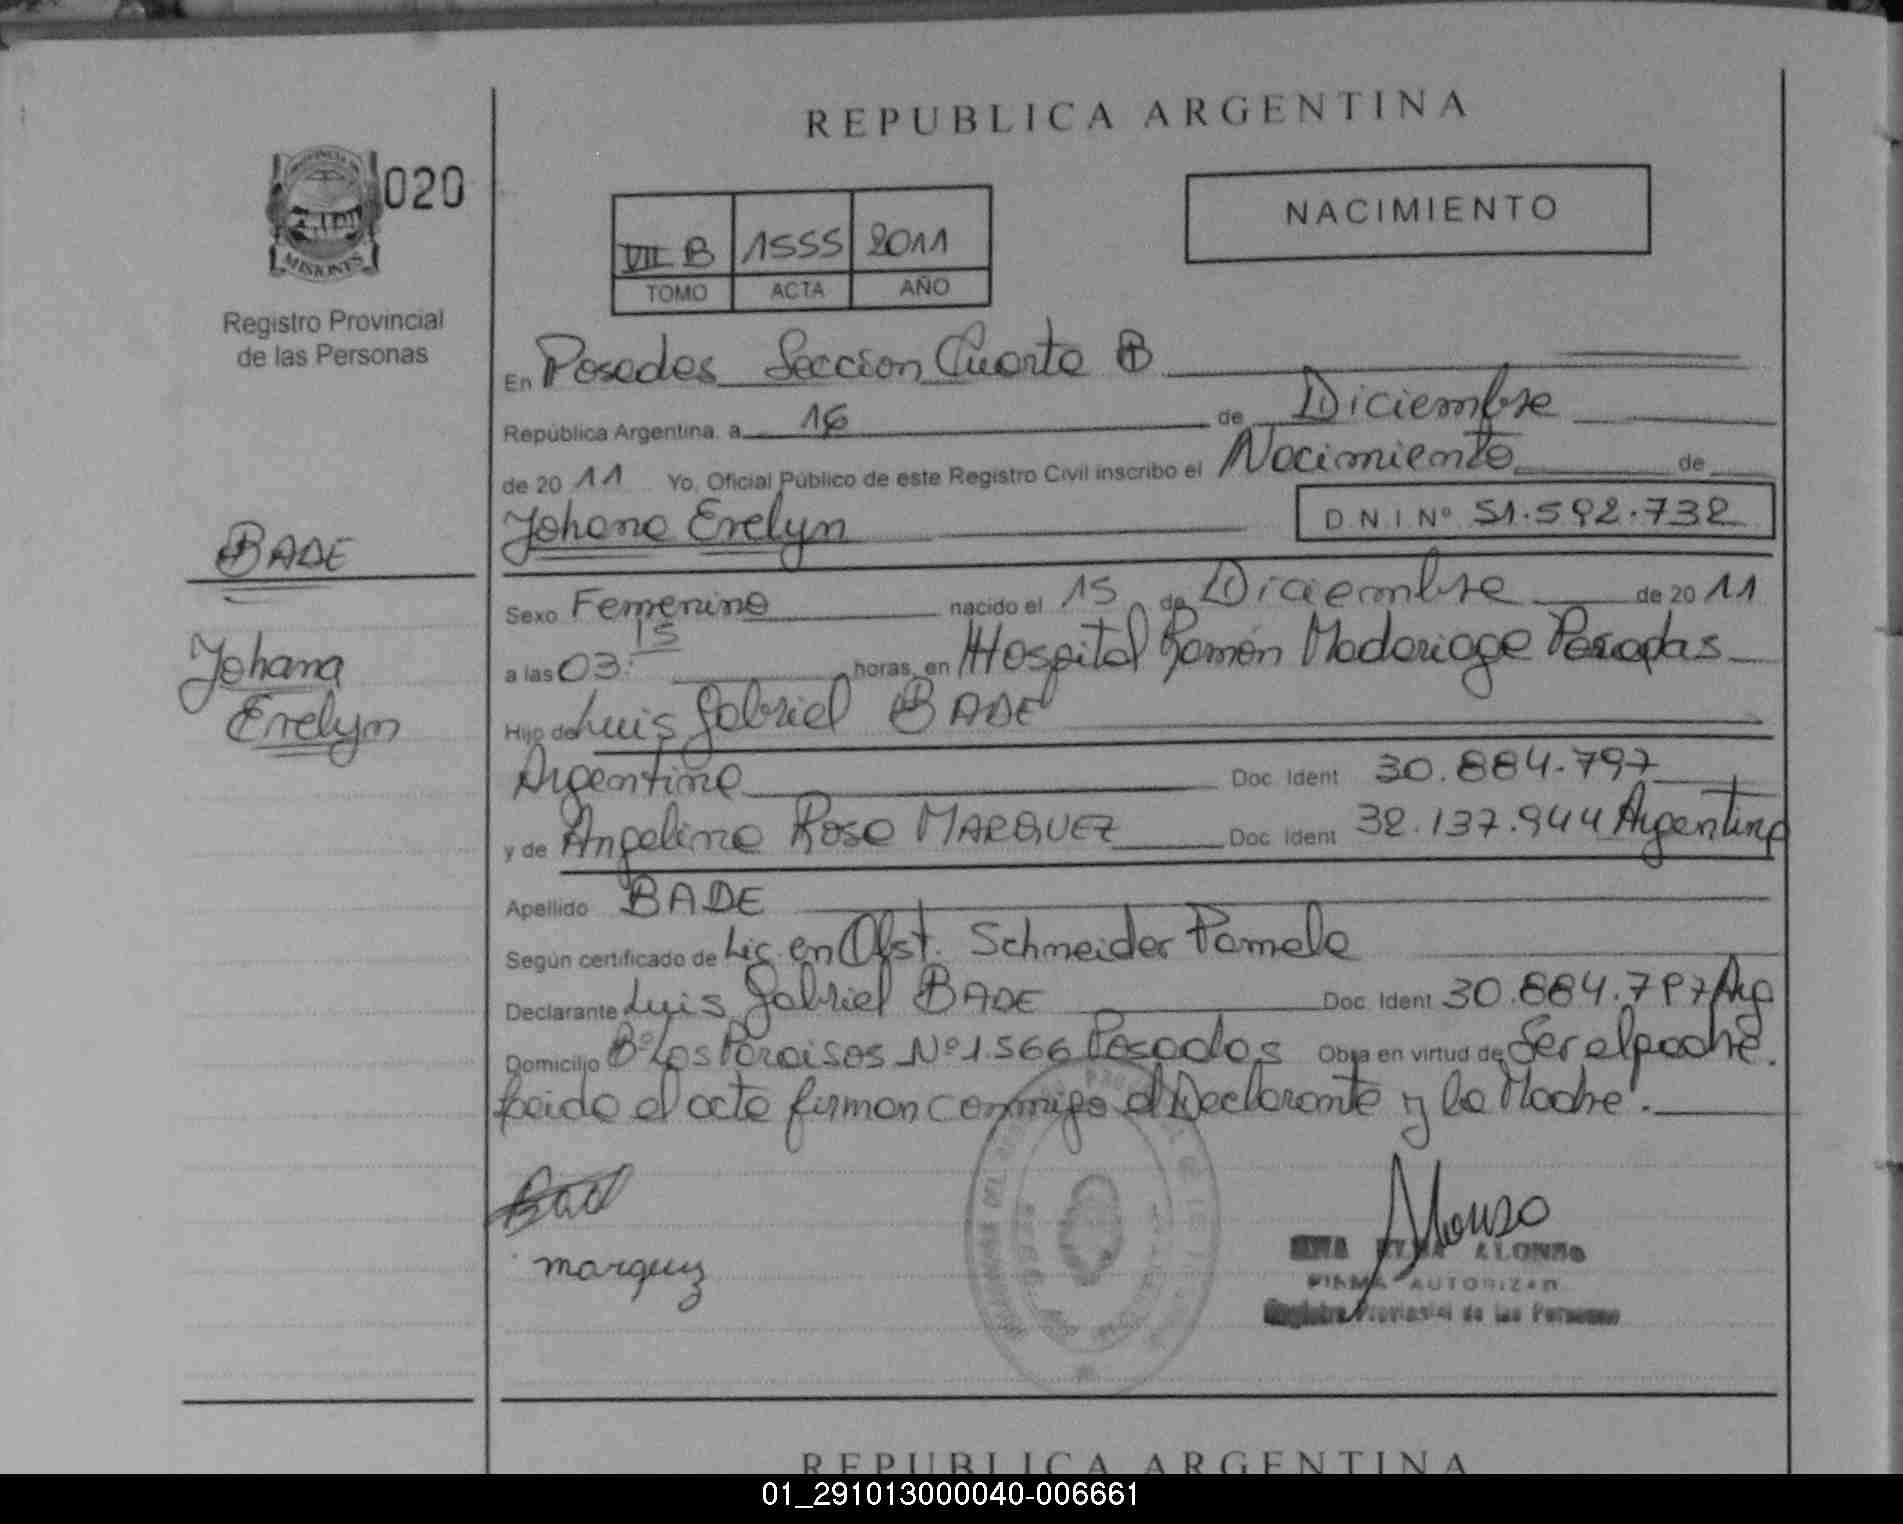 REPUBLICA ARGENTINA
020
PROVINCIA DE
MISIONES
Registro Provincial
de las Personas
NACIMIENTO
VII B 1555 2011
TOMO ACTA AÑO
En Posadas Seccion Cuarta B
República Argentina, a 16 de Diciembre
de 2011 Yo, Oficial Público de este Registro Civil inscribo el Nacimiento de
Johana Evelyn D N I Nº 51.592.732
BADE
Johana
Evelyn
Sexo Femenino nacido el 15 de Diciembre de 2011
a las 03:15 horas, en Hospital Ramón Madariaga Posadas
Hijo de Luis Gabriel BADE
Argentino Doc. Ident 30.884.797
y de Angelina Rosa MARQUEZ Doc Ident 32.137.944 Argentina
Apellido BADE
Según certificado de Lic. en Obst. Schneider Pamela
Declarante Luis Gabriel BADE Doc. Ident 30.884.797 Arg
Domicilio Bº Los Paraisos Nº 1.566 Posadas Obra en virtud de Ser el padre.
Leida el acta firman conmigo el Declarante y la Madre.
Bad
marquez
Alonso
ALONSO
FIRMA AUTORIZAD
Registro Provincial de las Personas
REPUBLICA ARGENTINA
01_291013000040-006661